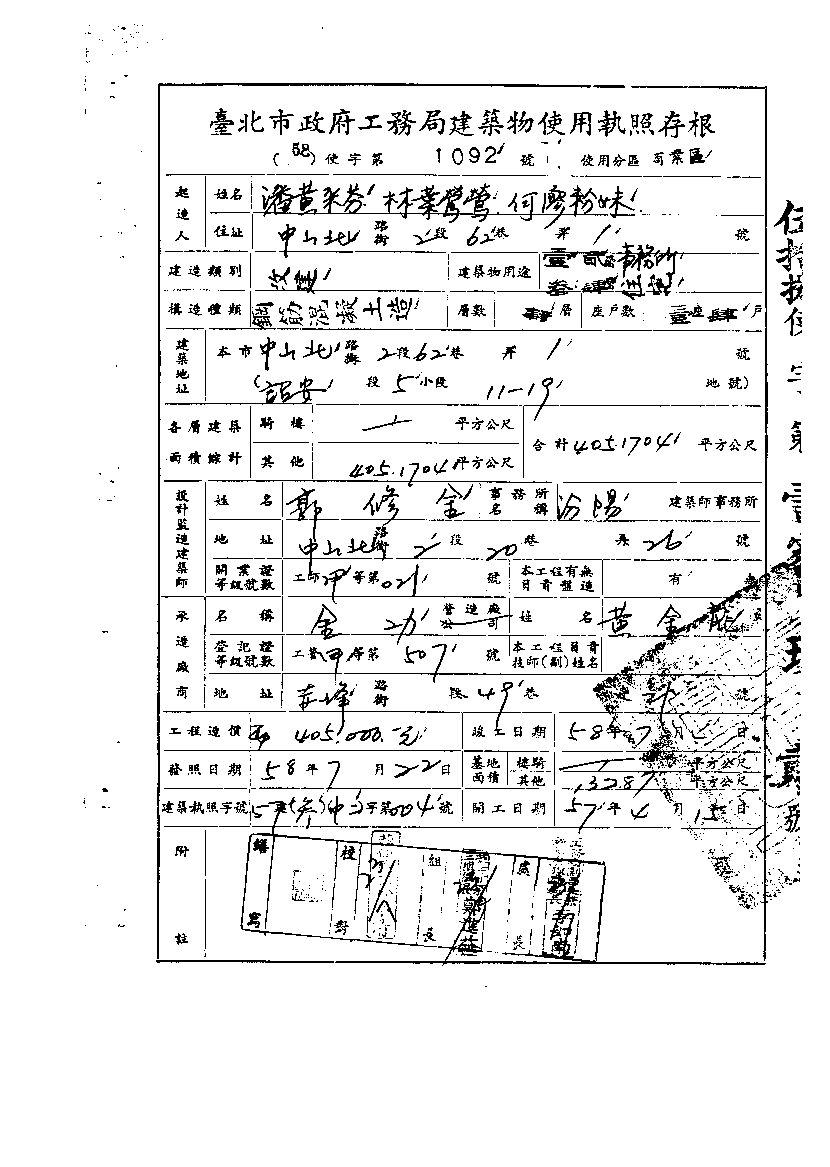 臺北市政府工務局建築物使用執照存根
(58)使字第 1092 號 使用分區 商業區
起造人 姓名 潘黃米芬 林葉鶯鶯 何廖粉妹
住址 中山北 路街 2段 62巷 弄 1 號
建造類別 改建 建築物用途 壹貳 事務所
參肆 住宅
構造種類 鋼筋混凝土造 層數 肆層 座戶數 壹座肆戶
建築地址 本市中山北 路街 2段62巷 弄 1 號
(詔安 段 5小段 11-19 地號)
各層建築面積總計 騎樓 平方公尺 合計405.1704 平方公尺
其他 405.1704平方公尺
設計監造建築師 姓名 郭修金 事務所名稱 汾陽 建築師事務所
地址 中山北 路街 2段 20巷 弄26 號
開業證等級號數 工師甲等第021號 本工程有無負責監造 有
承造廠商 名稱 金功 營造廠公司 姓名 黃金龍
登記證等級號數 工營甲等第507號 本工程負責技師(副)姓名
地址 赤峰 路街 段49巷 21號
工程造價 405,000.-元 竣工日期 58年7月 日
發照日期 58年7月22日 基地面積 樓騎 平方公尺
其他 132.87 平方公尺
建築執照字號 57 字第004號 開工日期 57年4月15日
附註
繕寫 校對 組長 處長
伍拾捌使字第壹 號